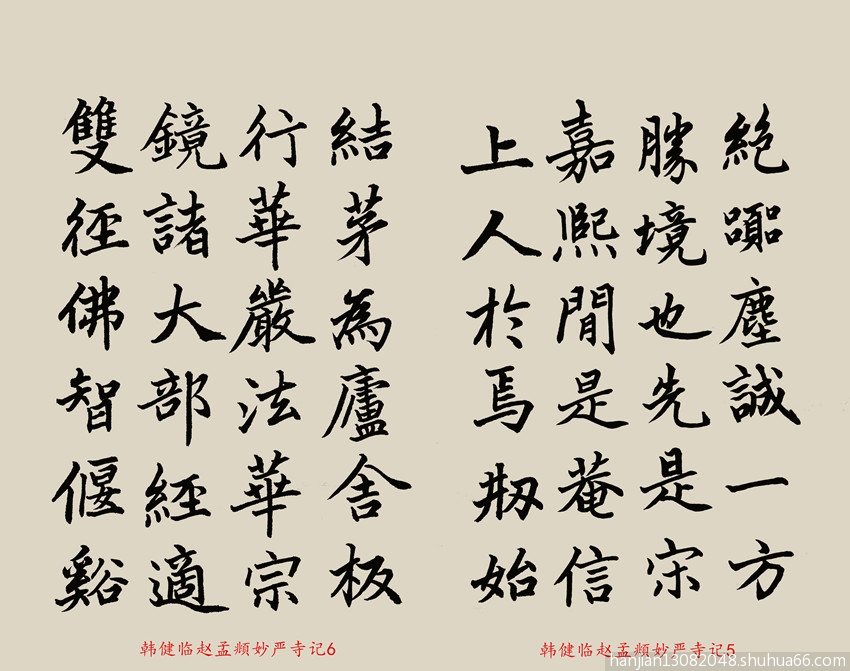 絶嚻塵誠一方
勝境也先是宋
嘉熙閒是菴信
上人於焉剏始
韩健临赵孟頫妙严寺记5
結茅為廬舎板
行華嚴法華宗
鏡諸大部經適
雙徑佛智偃谿
韩健临赵孟頫妙严寺记6
hanjian13082048.shuhua66.com